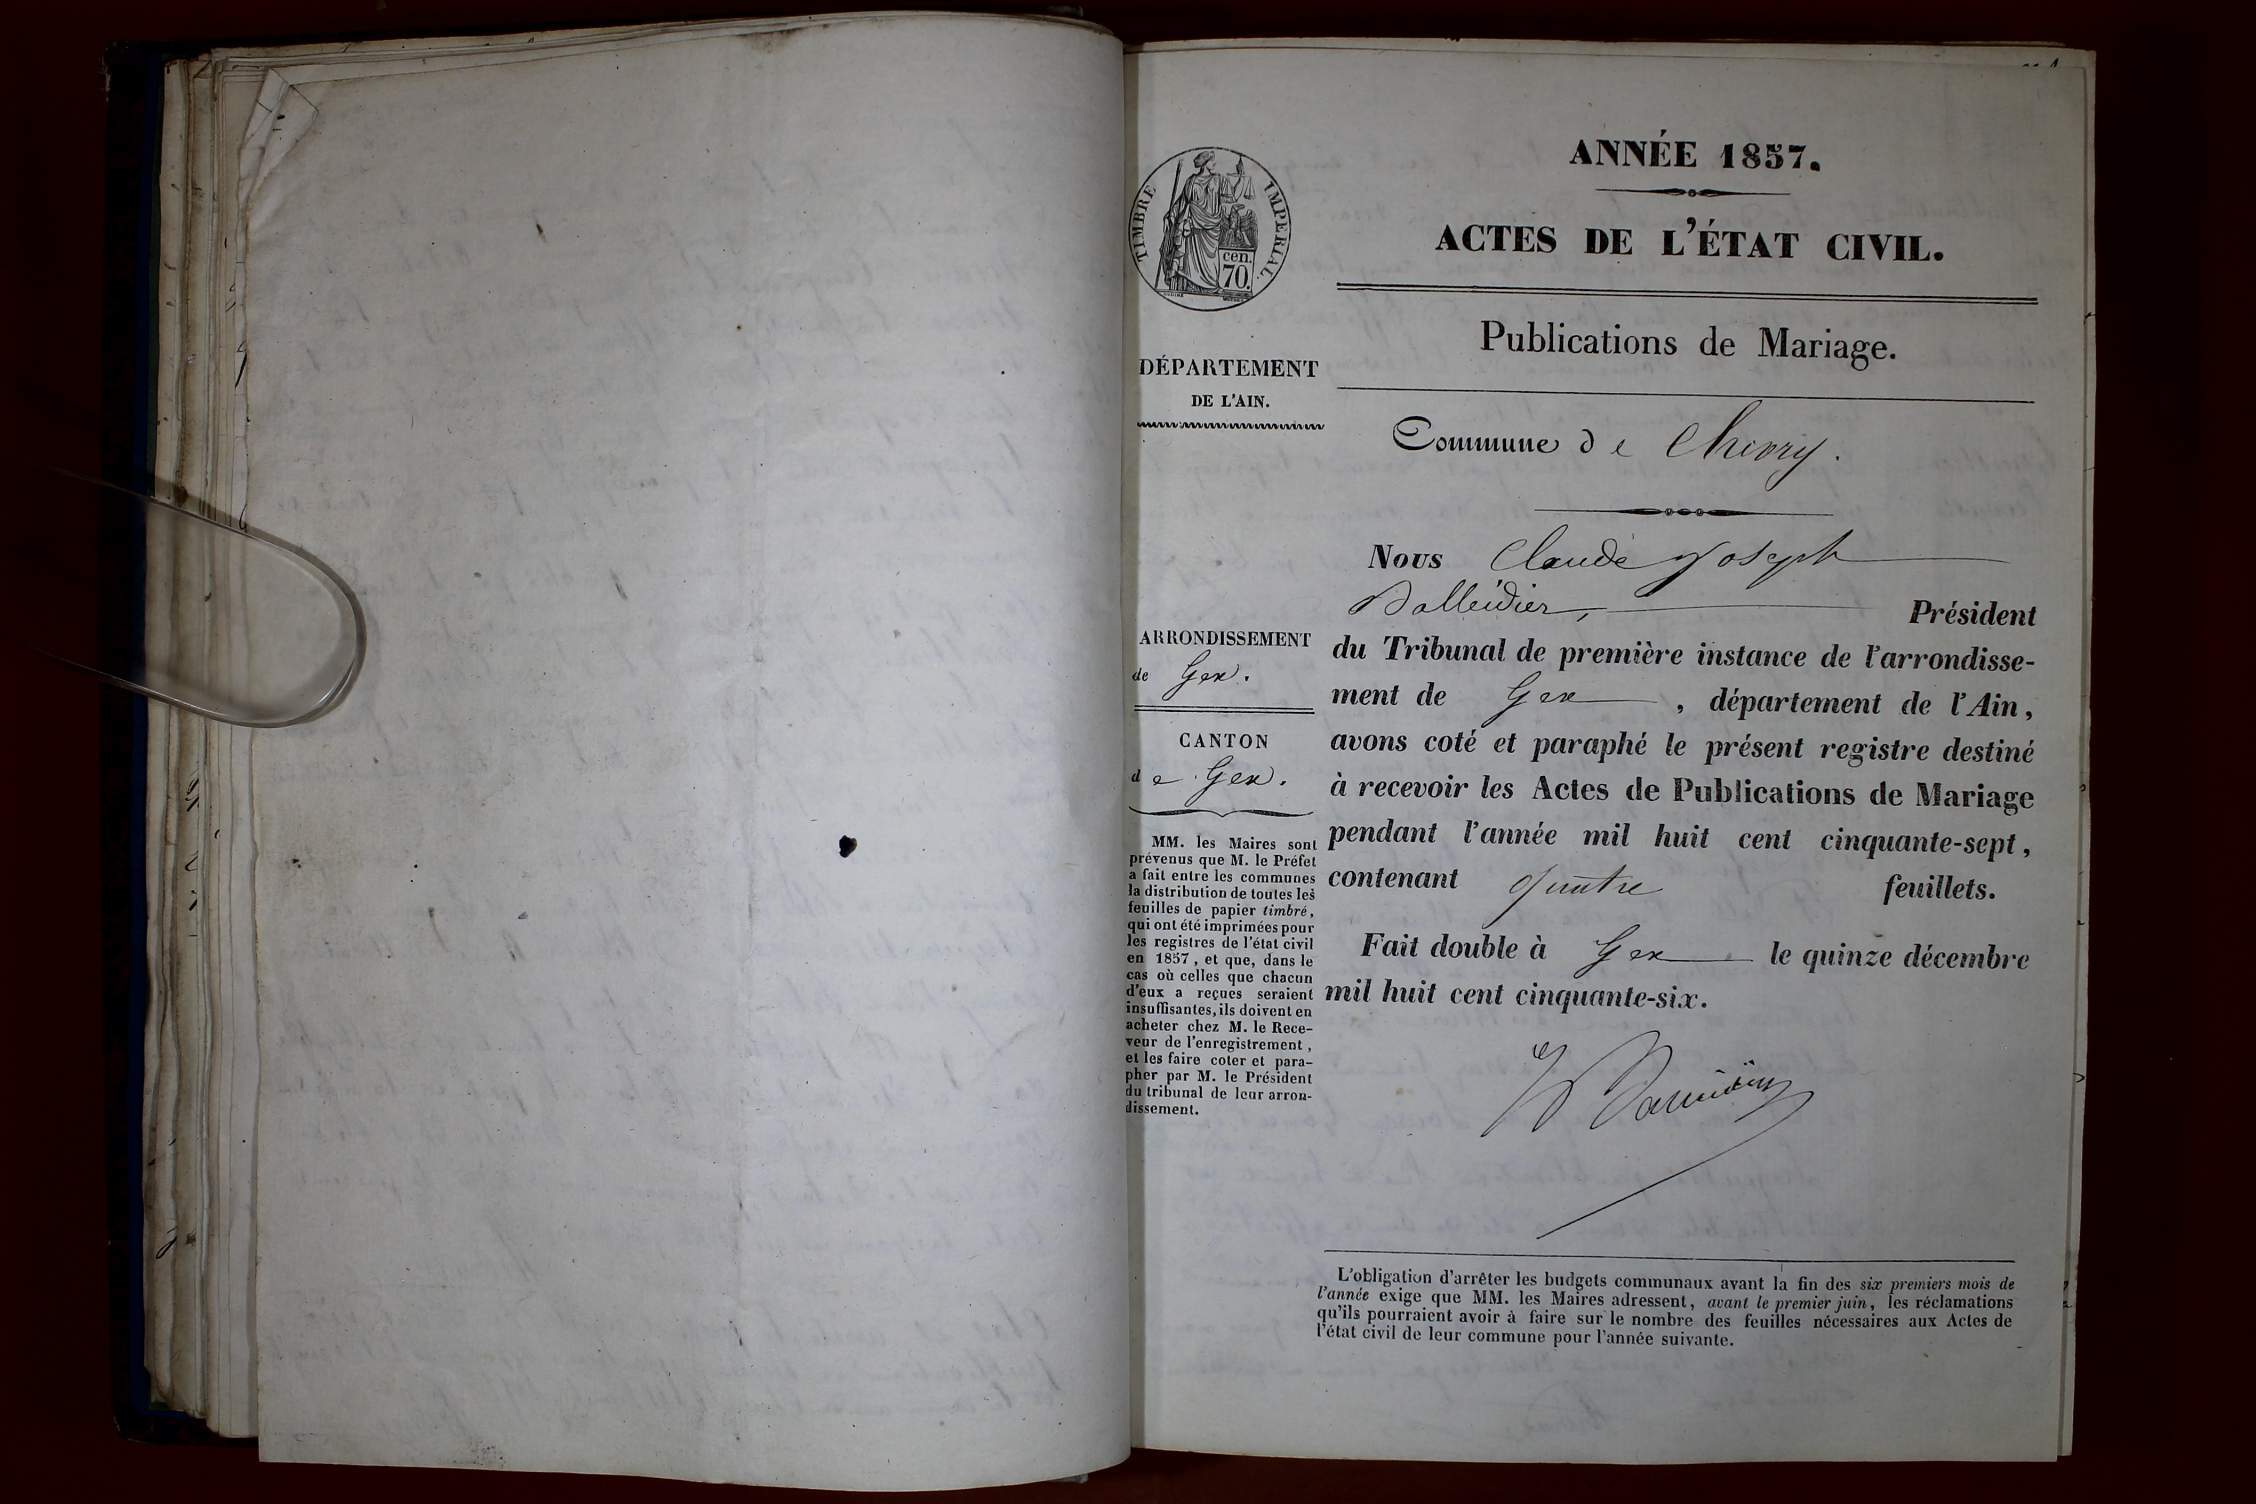 ANNÉE 1857.
ACTES DE L'ÉTAT CIVIL.
TIMBRE IMPERIAL.
cen.
70.
Publications de Mariage.
DÉPARTEMENT
DE L'AIN.
Commune de Chevry.
Nous Claude Joseph
Président
du Tribunal de première instance de l'arrondisse-
ment de Gex, département de l'Ain,
avons coté et paraphé le présent registre destiné
à recevoir les Actes de Publications de Mariage
pendant l'année mil huit cent cinquante-sept,
contenant quatre feuillets.
Fait double à Gex le quinze décembre
mil huit cent cinquante-six.
ARRONDISSEMENT
de Gex.
CANTON
de Gex.
MM. les Maires sont
prévenus que M. le Préfet
a fait entre les communes
la distribution de toutes les
feuilles de papier timbré,
qui ont été imprimées pour
les registres de l'état civil
en 1857, et que, dans le
cas où celles que chacun
d'eux a reçues seraient
insuffisantes, ils doivent en
acheter chez M. le Rece-
veur de l'enregistrement,
et les faire coter et para-
pher par M. le Président
du tribunal de leur arron-
dissement.
L'obligation d'arrêter les budgets communaux avant la fin des six premiers mois de
l'année exige que MM. les Maires adressent, avant le premier juin, les réclamations
qu'ils pourraient avoir à faire sur le nombre des feuilles nécessaires aux Actes de
l'état civil de leur commune pour l'année suivante.